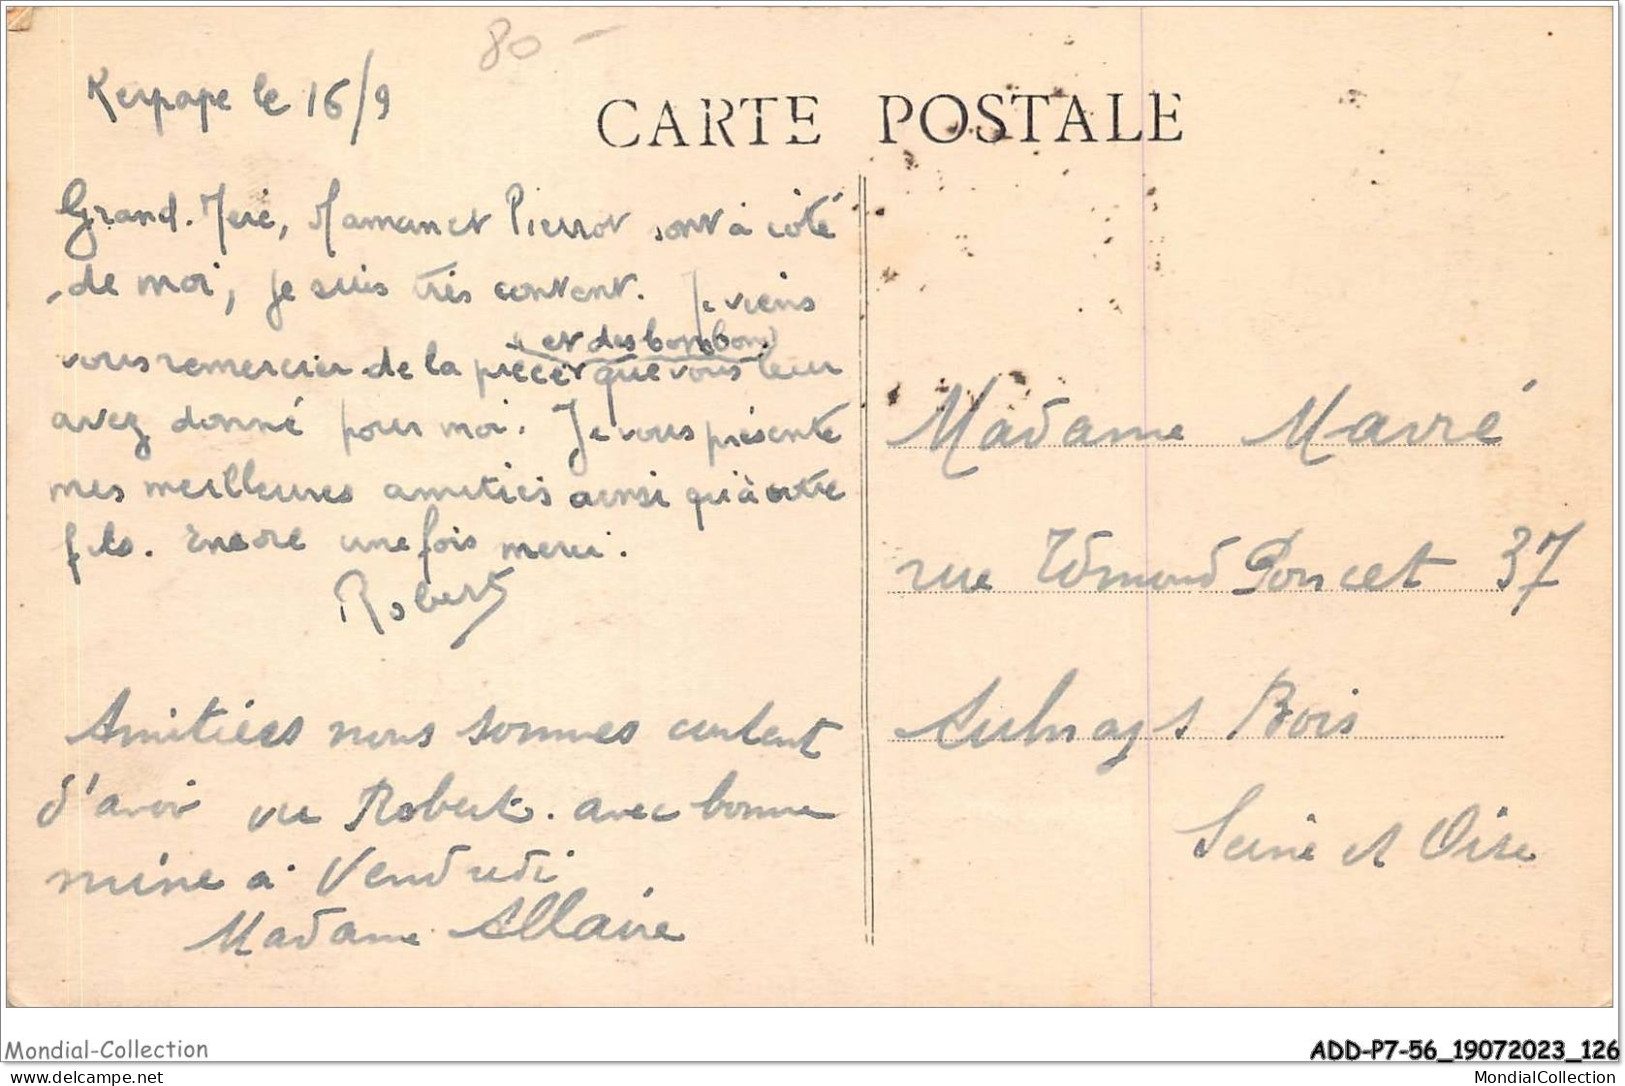 80 -
Kerpape le 16/9
CARTE POSTALE
Grand. Mère, Maman et Pierrot sont à côté
de moi, je suis très content. Je viens
et des bonbons
vous remercier de la pièce que vous leur
avez donné pour moi. Je vous présente
mes meilleures amitiés ainsi qu'à votre
fils. Encore une fois merci.
Robert
Amitiées nous sommes content
d'avoir vu Robert. avec bonne
mine a Vendredi
Madame Allaire
Madame Mavré
rue Edmond Poncet 37
Aulnay s Bois
Seine et Oise
Mondial-Collection
ADD-P7-56_19072023_126
delcampe.net
MondialCollection